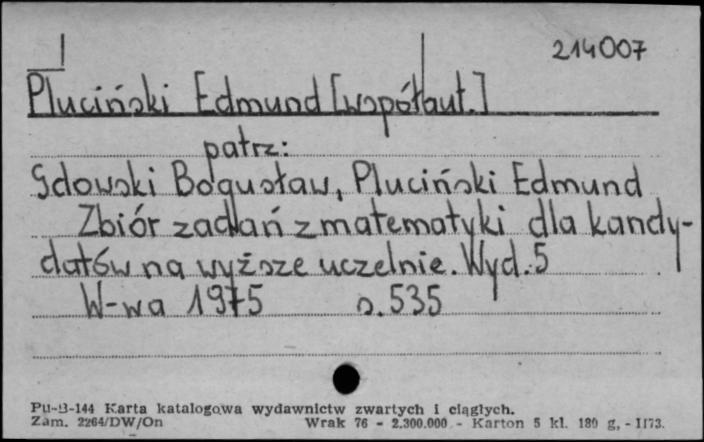 214007
Pluciński Edmund [współaut.]
patrz:
Gdowski Bogusław, Pluciński Edmund
Zbiór zadań z matematyki dla kandy-
datów na wyższe uczelnie. Wyd. 5
W-wa 1975 s. 535
Pu-B-144 Karta katalogowa wydawnictw zwartych i ciągłych.
Zam. 2264/DW/On Wrak 76 - 2.300.000 - Karton 5 kl. 180 g, - II73.